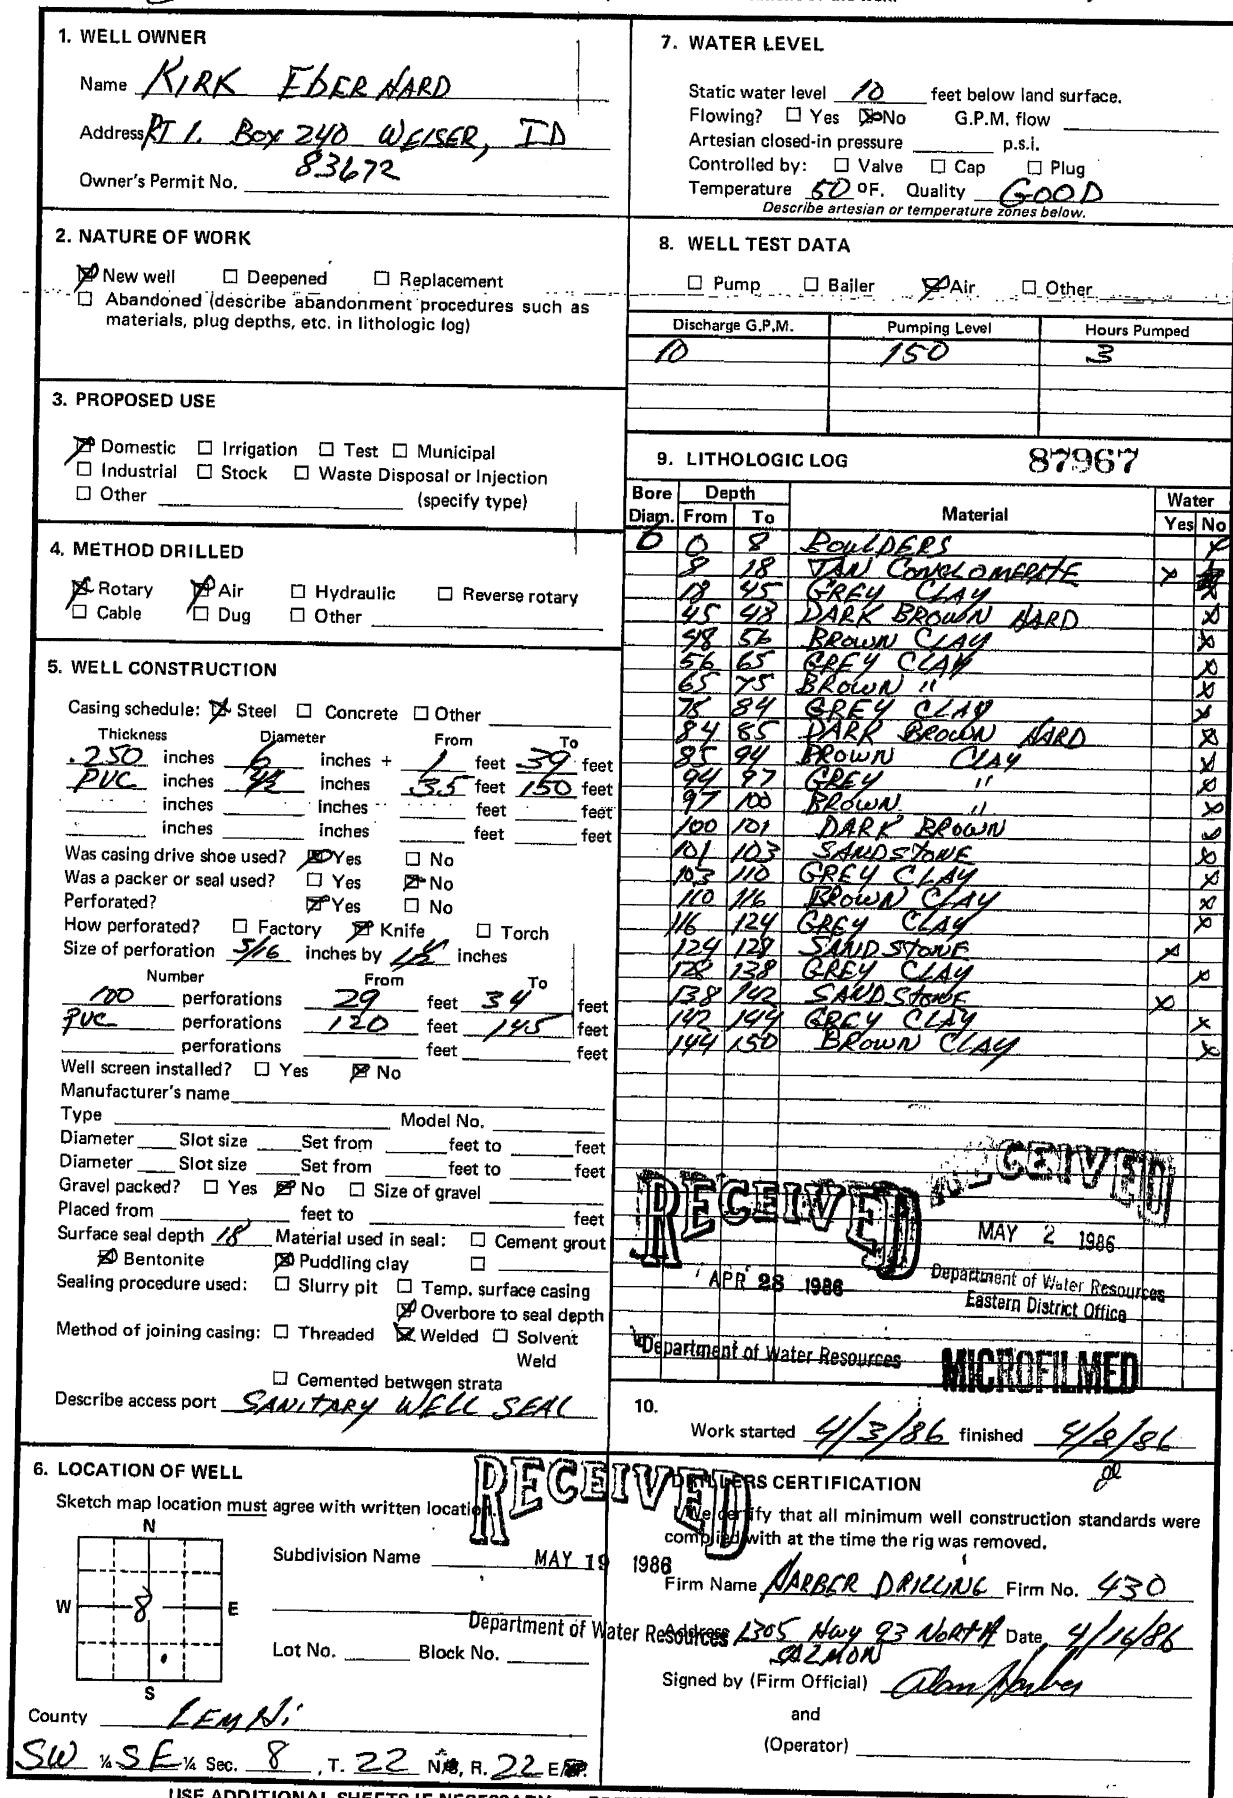 1. WELL OWNER
Name KIRK EbERHARD
Address RT 1. Box 240 WEISER, ID
83672
Owner's Permit No.
2. NATURE OF WORK
☒ New well ☐ Deepened ☐ Replacement
☐ Abandoned (describe abandonment procedures such as
materials, plug depths, etc. in lithologic log)
3. PROPOSED USE
☒ Domestic ☐ Irrigation ☐ Test ☐ Municipal
☐ Industrial ☐ Stock ☐ Waste Disposal or Injection
☐ Other (specify type)
4. METHOD DRILLED
☒ Rotary ☒ Air ☐ Hydraulic ☐ Reverse rotary
☐ Cable ☐ Dug ☐ Other
5. WELL CONSTRUCTION
Casing schedule: ☒ Steel ☐ Concrete ☐ Other
Thickness Diameter From To
.250 inches 6 inches + 1 feet 39 feet
PVC inches 4½ inches 35 feet 150 feet
inches inches feet feet
inches inches feet feet
Was casing drive shoe used? ☒ Yes ☐ No
Was a packer or seal used? ☐ Yes ☒ No
Perforated? ☒ Yes ☐ No
How perforated? ☐ Factory ☒ Knife ☐ Torch
Size of perforation 5/16 inches by 1½ inches
Number From To
100 perforations 29 feet 34 feet
PVC perforations 120 feet 145 feet
perforations feet feet
Well screen installed? ☐ Yes ☒ No
Manufacturer's name
Type Model No.
Diameter Slot size Set from feet to feet
Diameter Slot size Set from feet to feet
Gravel packed? ☐ Yes ☒ No ☐ Size of gravel
Placed from feet to feet
Surface seal depth 18 Material used in seal: ☐ Cement grout
☒ Bentonite ☒ Puddling clay ☐
Sealing procedure used: ☐ Slurry pit ☐ Temp. surface casing
☒ Overbore to seal depth
Method of joining casing: ☐ Threaded ☒ Welded ☐ Solvent
Weld
☐ Cemented between strata
Describe access port SANITARY WELL SEAL
6. LOCATION OF WELL
Sketch map location must agree with written location.
N
W 8 E
S
Subdivision Name
Lot No. Block No.
County LEMHi
SW ¼ SE ¼ Sec. 8, T. 22 N, R. 22 E
7. WATER LEVEL
Static water level 10 feet below land surface.
Flowing? ☐ Yes ☒ No G.P.M. flow
Artesian closed-in pressure p.s.i.
Controlled by: ☐ Valve ☐ Cap ☐ Plug
Temperature 50 °F. Quality GOOD
Describe artesian or temperature zones below.
8. WELL TEST DATA
☐ Pump ☐ Bailer ☒ Air ☐ Other
Discharge G.P.M. Pumping Level Hours Pumped
10 150 3
9. LITHOLOGIC LOG 87967
Bore Depth Water
Diam. From To Material Yes No
6 0 8 BOULDERS x
8 18 TAN CONGLOMERITE x
18 45 GREY CLAY x
45 48 DARK BROWN HARD x
48 56 BROWN CLAY x
56 65 GREY CLAY x
65 75 BROWN " x
75 84 GREY CLAY x
84 85 DARK BROWN HARD x
85 94 BROWN CLAY x
94 97 GREY " x
97 100 BROWN " x
100 101 DARK BROWN x
101 103 SANDSTONE x
103 110 GREY CLAY x
110 116 BROWN CLAY x
116 124 GREY CLAY x
124 128 SANDSTONE x
128 138 GREY CLAY x
138 142 SANDSTONE x
142 144 GREY CLAY x
144 150 BROWN CLAY x
RECEIVED
MAY 2 1986
Department of Water Resources
Eastern District Office
RECEIVED
APR 28 1986
Department of Water Resources
MICROFILMED
10.
Work started 4/3/86 finished 4/8/86
RECEIVED
MAY 19 1986
Department of Water Resources
DRILLERS CERTIFICATION
I/We certify that all minimum well construction standards were
complied with at the time the rig was removed.
Firm Name HARBER DRILLING Firm No. 430
Address 1305 Hwy 93 NORTH Date 4/16/86
SALMON
Signed by (Firm Official) Alan Harber
and
(Operator)